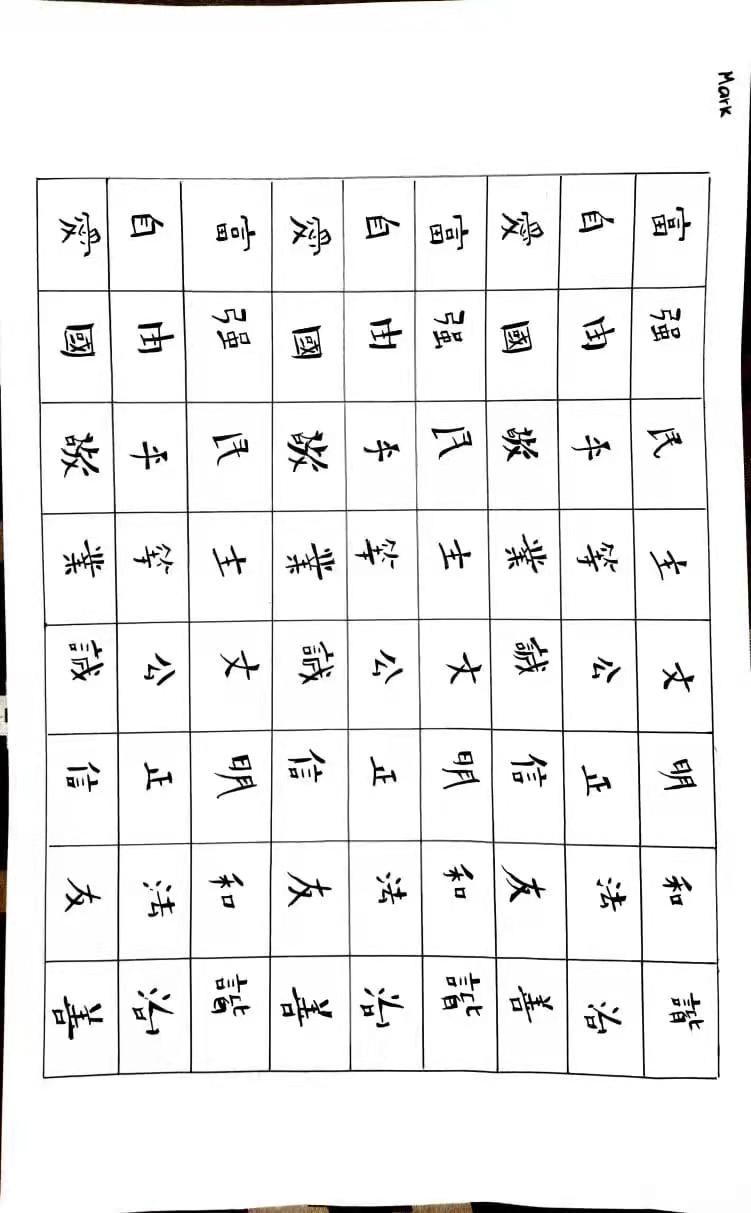 Mark
富强民主文明和諧
自由平等公正法治
愛國敬業誠信友善
富强民主文明和諧
自由平等公正法治
愛國敬業誠信友善
富强民主文明和諧
自由平等公正法治
愛國敬業誠信友善